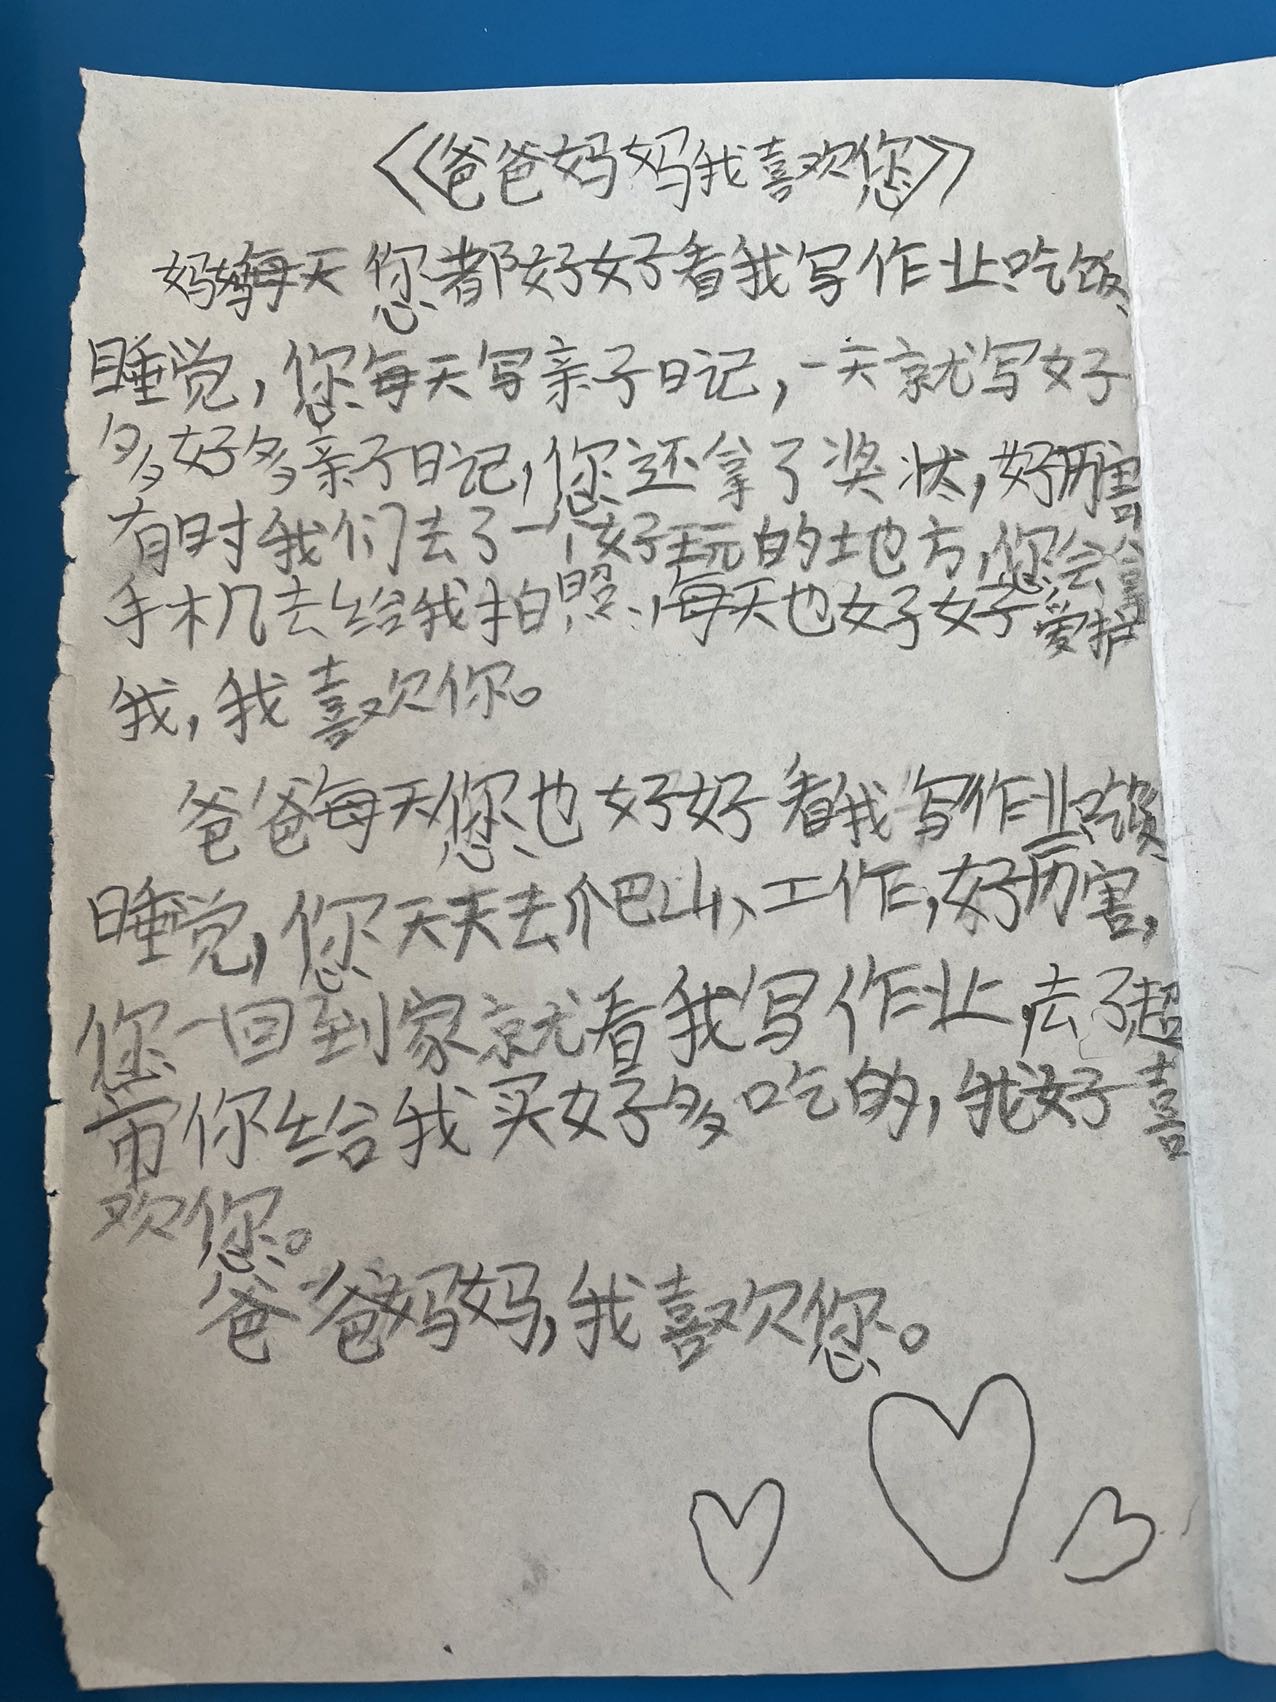 《爸爸妈妈我喜欢您》
妈妈每天您都好好看我写作业、吃饭、
睡觉，您每天写亲子日记，一天就写好
多好多亲子日记，您还拿了奖状，好厉害，
有时我们去了一个好玩的地方，您会拿
手机去给我拍照，每天也好好爱护
我，我喜欢你。
爸爸每天您也好好看我写作业、吃饭、
睡觉，您天天去爬山、工作，好厉害，
您一回到家就看我写作业，去了超
市你给我买好多吃的，我好喜
欢您。
爸爸妈妈，我喜欢您。